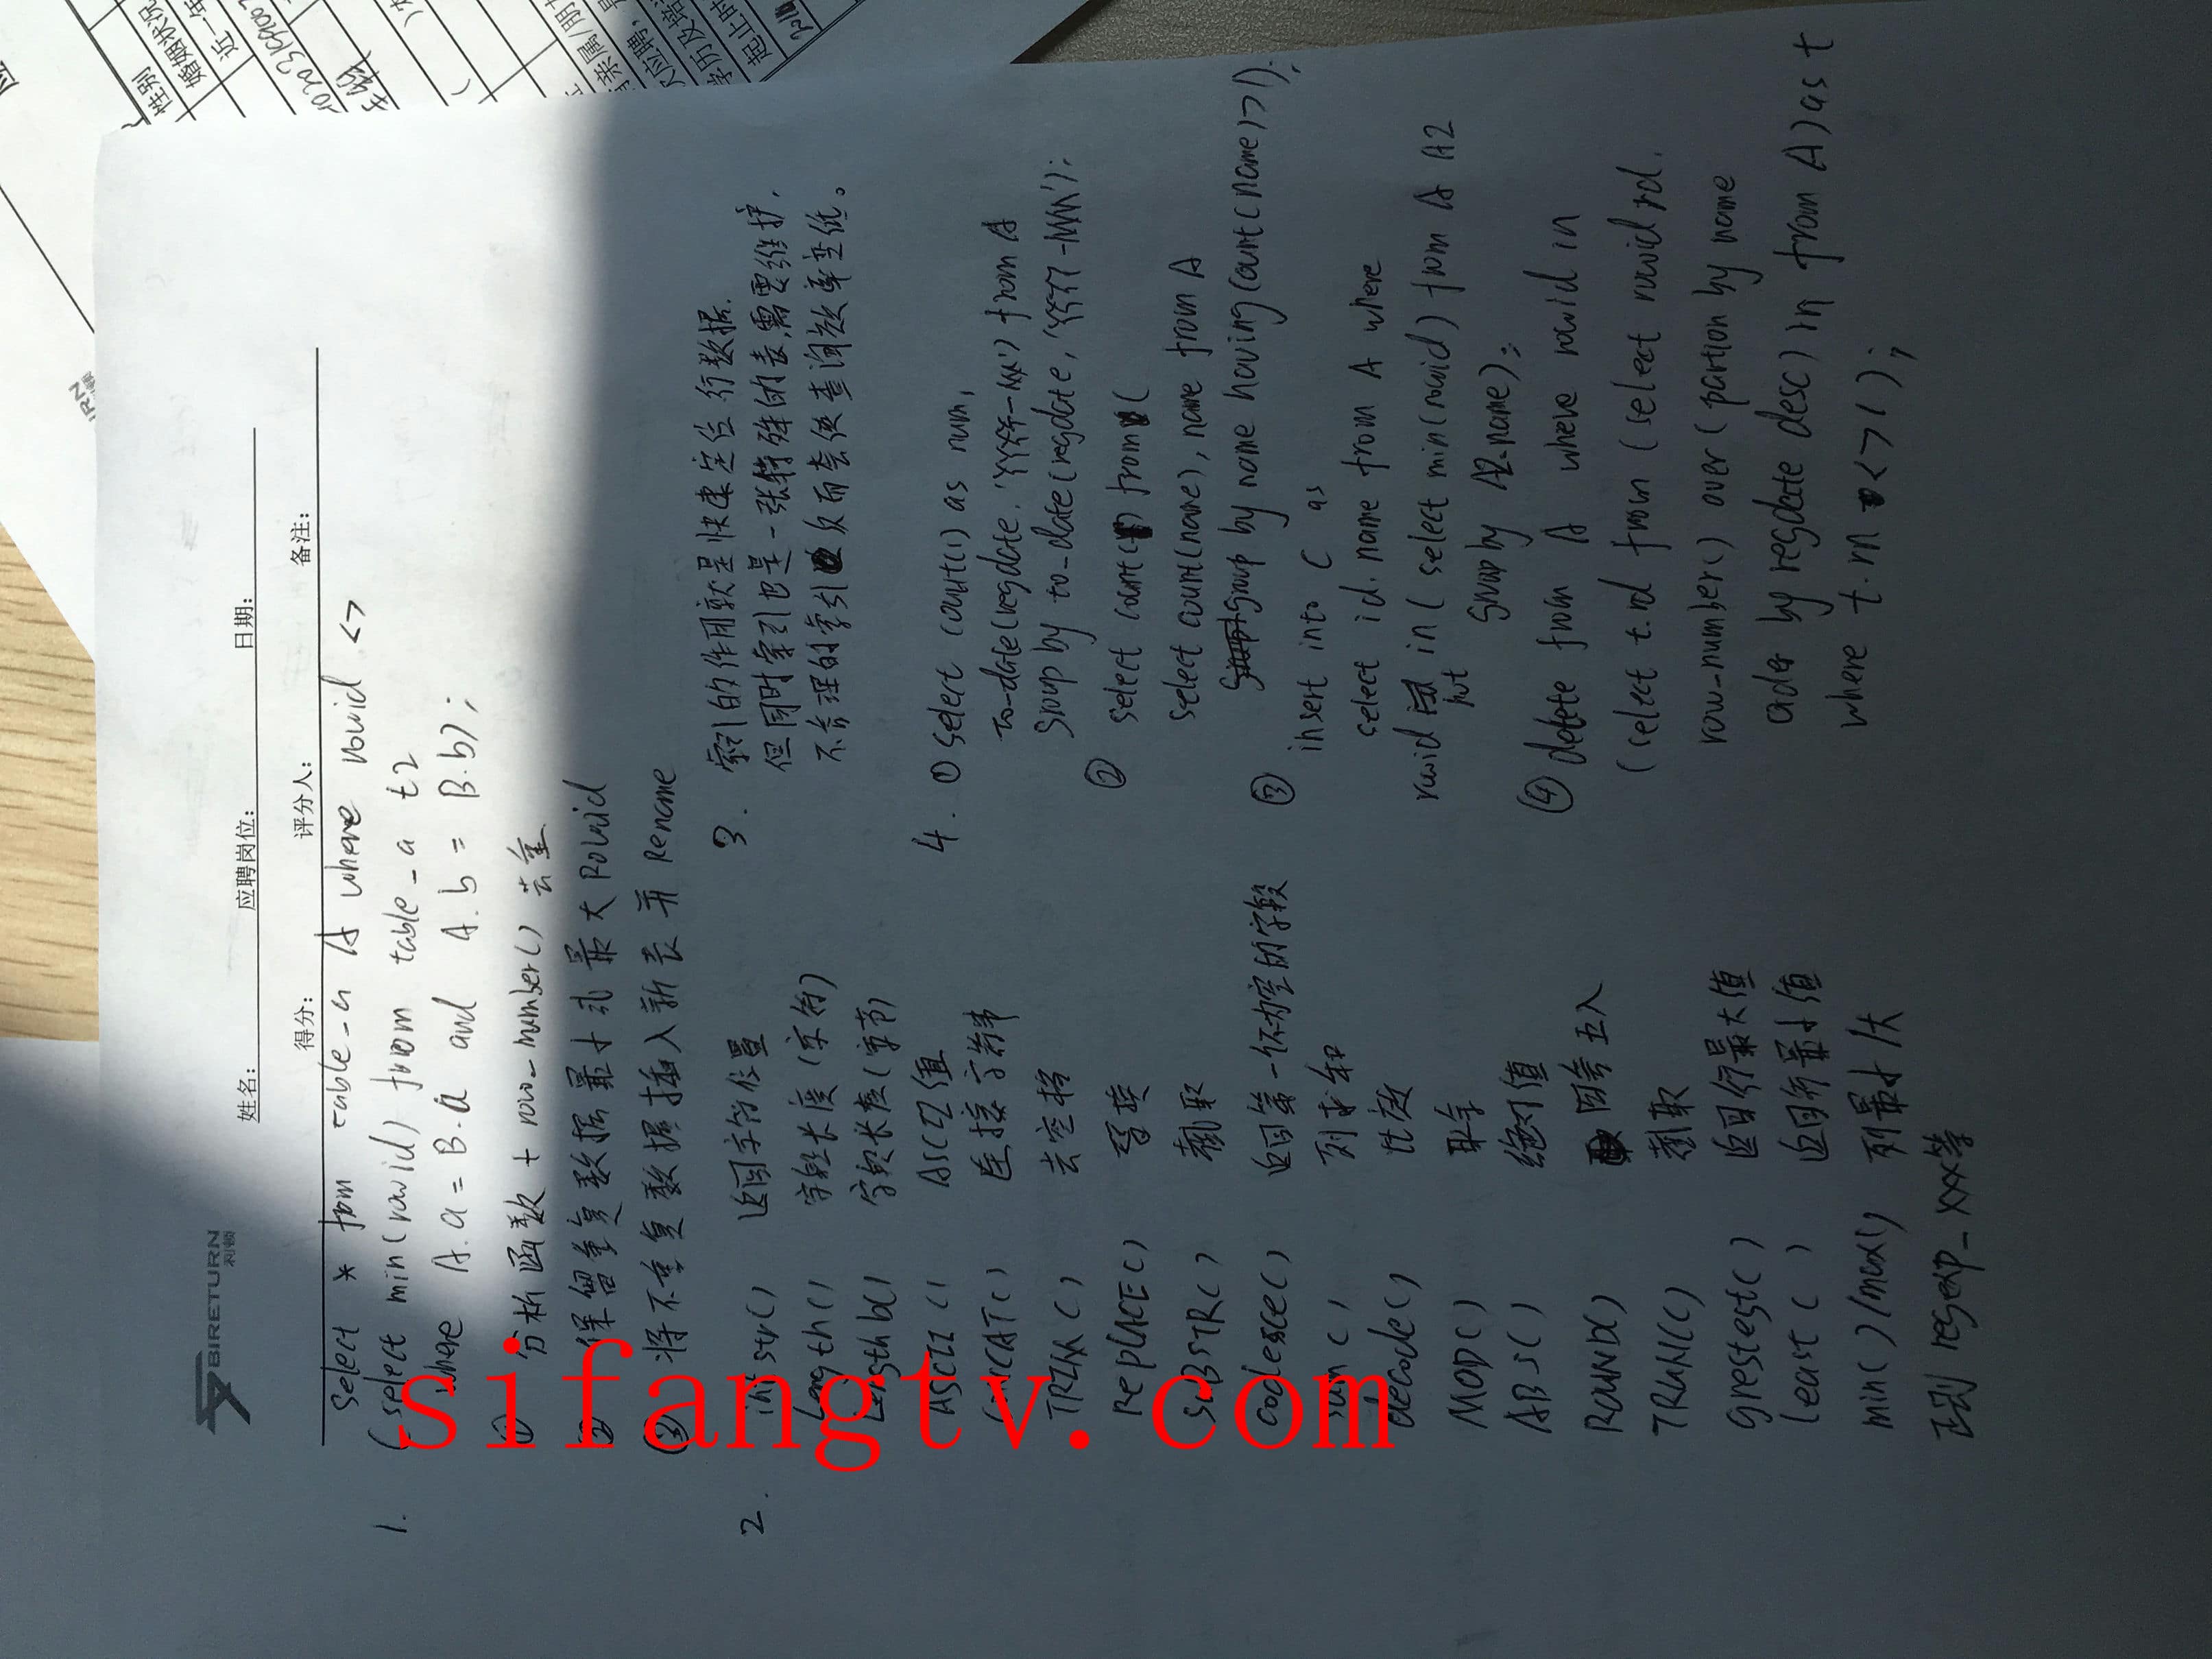 BIRETURN
利顿
姓名:
应聘岗位:
日期:
得分:
评分人:
备注:
1.
select * from table_a A where rowid <>
(select min(rowid) from table_a t2
where A.a = B.a and A.b = B.b);
① 分析函数 + row_number() 去重
② 保留重复数据最小或最大Rowid
③ 将不重复数据插入新表并Rename
2.
instr() 返回字符位置
Length() 字段长度(字符)
Lengthb() 字段长度(字节)
ASCII() ASCII值
CONCAT() 连接字符串
TRIM() 去空格
REPLACE() 替换
SUBSTR() 截取
coalesce() 返回第一个不为空的字段
sum() 列求和
decode() 比较
MOD() 取余
ABS() 绝对值
ROUND() 四舍五入
TRUNC() 截取
grestest() 返回行最大值
least() 返回行最小值
min()/max() 列最小/大
正则 regexp_xxx等
3. 索引的作用就是快速定位行数据.
但同时索引也是一张特殊的表,需要维护,
不合理的索引反而会使查询效率变低。
4. ① select count(1) as num,
to_date(regdate, 'YYYY-MM') from A
group by to_date(regdate, 'YYYY-MM');
② select count() from (
select count(name), name from A
group by name having count(name)>1);
③ insert into C as
select id, name from A where
rowid not in (select min(rowid) from A A2
group by A2.name);
④ delete from A where rowid in
(select t.rd from (select rowid rd,
row_number() over (partion by name
order by regdate desc) rn from A) as t
where t.rn <> 1);
性别
婚姻状况
近一年
学历及培
起止时
sifangtv.com